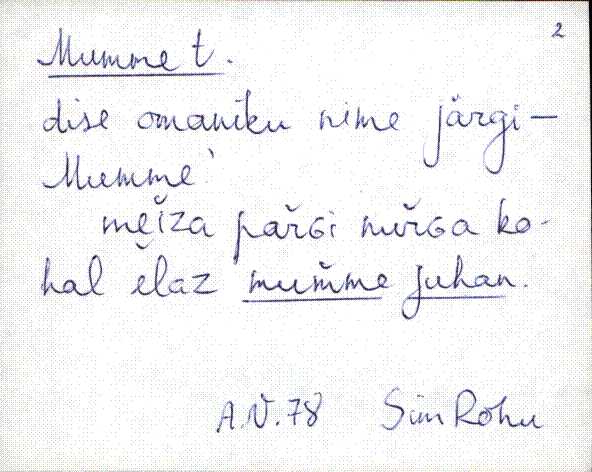 2
Mumme t.
dise omaniku nime järgi –
Mumme'
mĕ̮iza pär̆Gi nur̆Ga ko-
hal ĕlaz mum̆me juhan.
A.N. 78 Sim Rohu